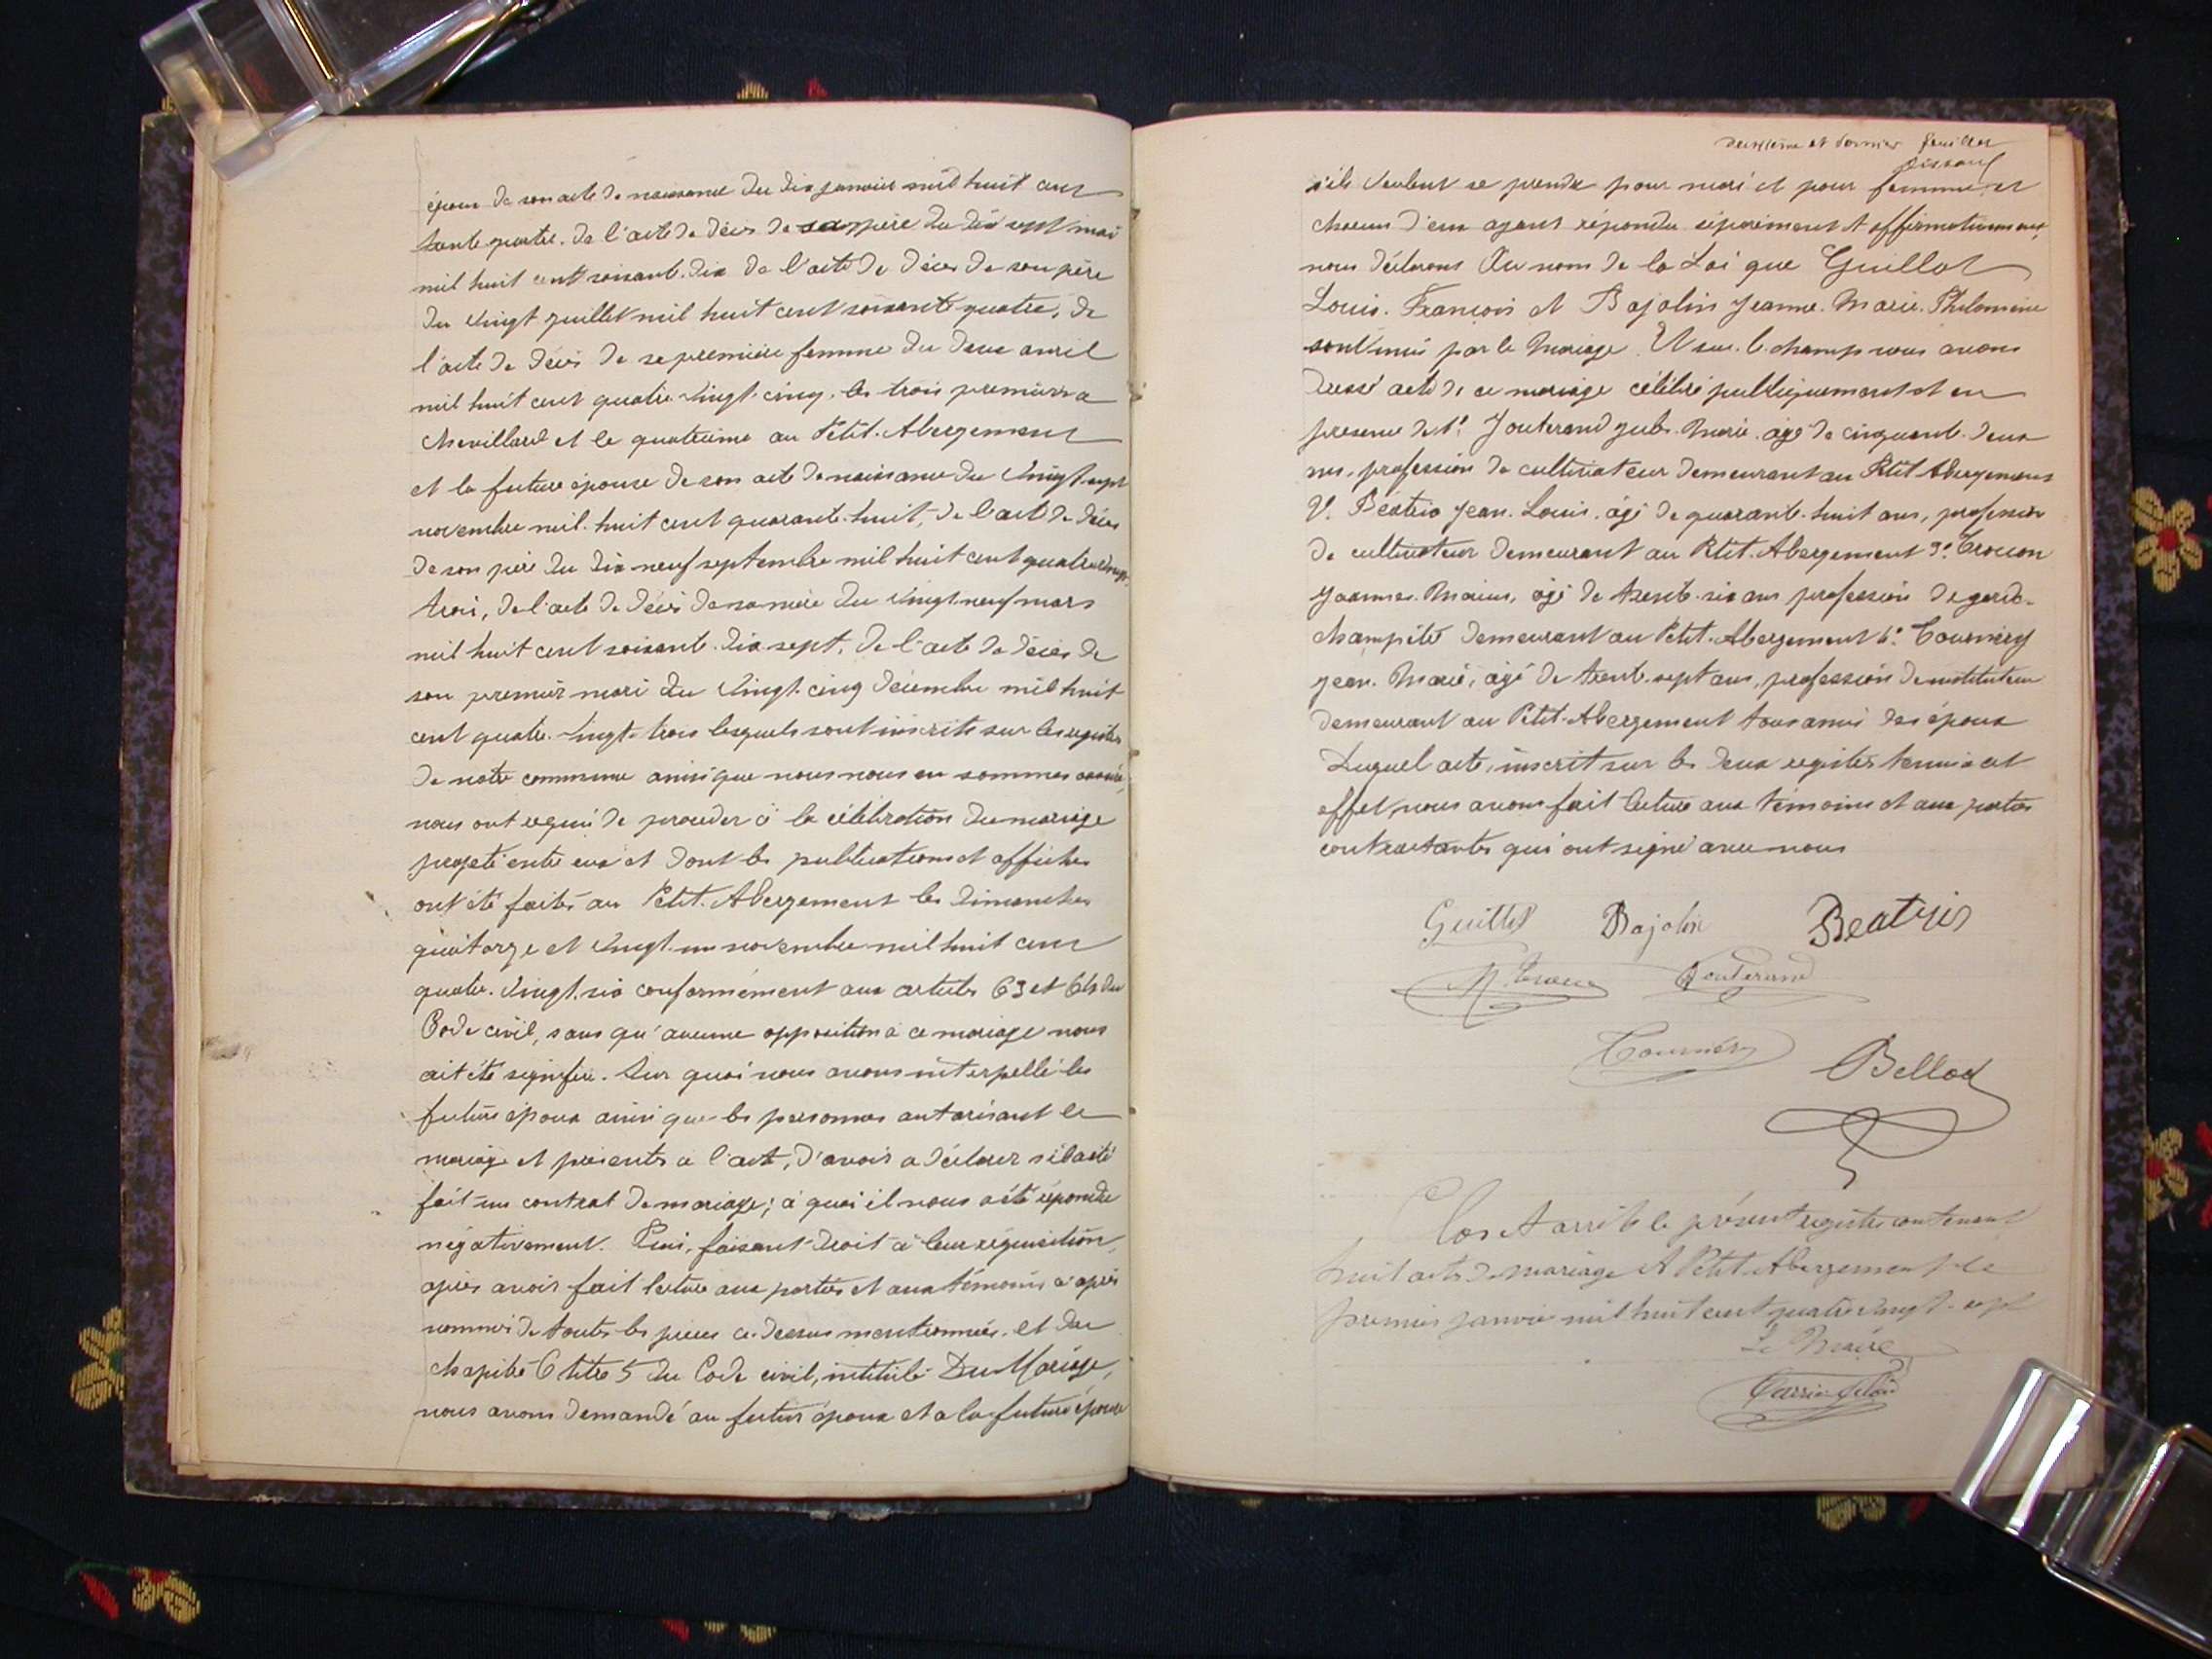 époux de son acte de naissance du dix janvier mil huit cent
trente quatre. de l'acte de décès de sa mère du dix sept mai
mil huit cent soixante. dix de l'acte de décès de son père
du vingt juillet mil huit cent soixante quatre, de
l'acte de décès de sa première femme du deux avril
mil huit cent quatre-vingt-cinq. les trois premiers a
Chevillard et le quatrième au Petit-Abergement
et la future épouse de son acte de naissance du vingt sept
novembre mil. huit cent quarante-huit, de l'acte de décès
de son père du dix neuf septembre mil huit cent quatre vingt
trois, de l'acte de décès de sa mère du vingt-neuf mars
mil huit cent soixante-dix sept, de l'acte de décès de
son premier mari du vingt-cinq décembre mil huit
cent quatre-vingt-trois lesquels sont inscrits sur les registres
de notre commune ainsi que nous nous en sommes assuré,
nous ont requis de procéder à la célébration du mariage
projeté entre eux et dont les publications et affiches
ont été faites au Petit-Abergement les dimanches
quatorze et vingt-un novembre mil huit cent
quatre-vingt-six conformément aux articles 63 et 64 du
Code civil, sans qu'aucune opposition à ce mariage nous
ait été signifiée. Sur quoi nous avons interpellé les
futurs époux ainsi que les personnes autorisant le
mariage et présents a l'acte, d'avoir a déclarer s'il a été
fait un contrat de mariage; à quoi il nous a été répondu
négativement. Puis, faisant droit à leur réquisition,
après avoir fait lecture aux parties et aux témoins ci après
nommés de toutes les pièces ci-dessus mentionnées. et du
chapitre 6 titre 5 du Code civil, intitulé Du Mariage,
nous avons demandé au futur époux et a la future épouse
deuxième et dernier feuillet
s'ils veulent se prendre pour mari et pour femme et
chacun d'eux ayant répondu séparément et affirmativement,
nous déclarons Au nom de la Loi que Guillot
Louis-François et Bajolin Jeanne-Marie-Philomène
sont unis par le Mariage. Et sur-le-champ nous avons
dressé acte de ce mariage célébré publiquement et en
présence de 1° Jouterand Jules-Marie âgé de cinquante-deux
ans, profession de cultivateur demeurant au Petit Abergement
2° Béatrix Jean-Louis, âgé de quarante-huit ans, profession
de cultivateur demeurant au Petit-Abergement 3°
Marius, âgé de trente-six ans profession de garde-
champêtre demeurant au Petit-Abergement 4° Tournery
Jean-Marie, âgé de trente-sept ans, profession d'instituteur
demeurant au Petit-Abergement tous amis des époux
Duquel acte, inscrit sur les deux registres tenus à cet
effet, nous avons fait lecture aux témoins et aux parties
contractantes qui ont signé avec nous
Guillot Bajolin Beatrix
Jouterand
Tournery Bellod
Clos et arrêté le présent registre contenant
huit actes de mariage A Petit-Abergement le
premier janvier mil huit cent quatre vingt-sept
Le Maire